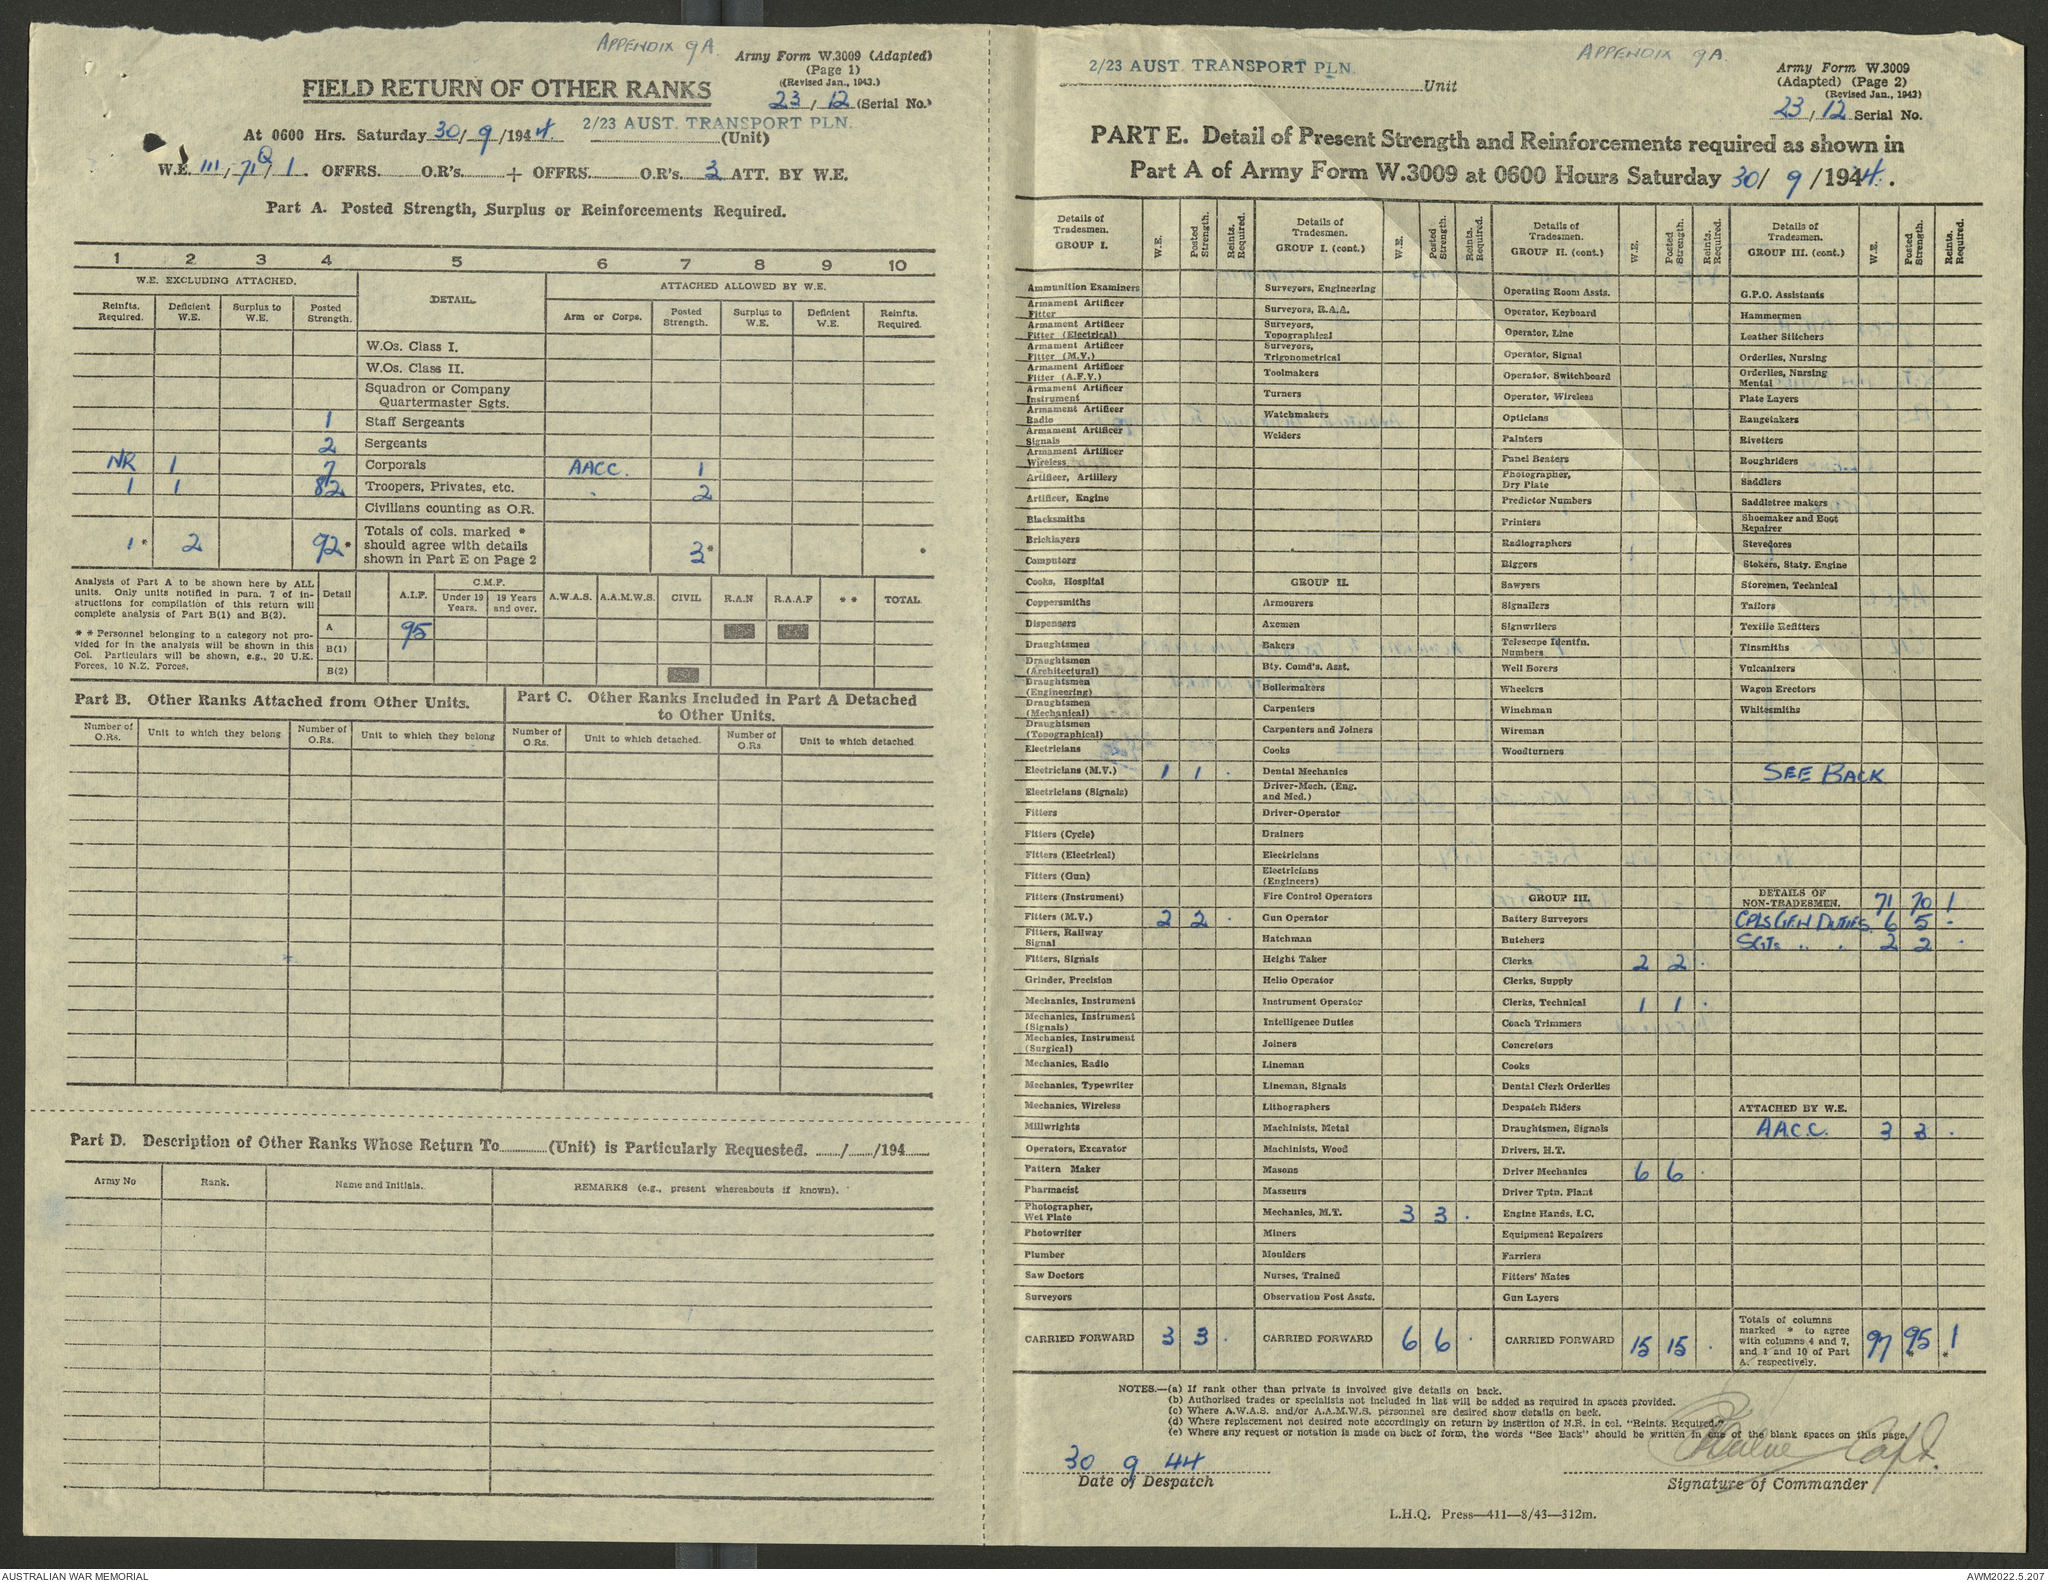 APPENDIX 9A
Army Form W.3009 (Adapted)
(Page 1)
(Revised Jan., 1943.)
FIELD RETURN OF OTHER RANKS
23 / 12 (Serial No.)
At 0600 Hrs. Saturday 30/ 9 /1944. 2/23 AUST. TRANSPORT PLN. (Unit)
W.E. III / 71Q / 1 . OFFRS. O.R's. + OFFRS. O.R's. 3 ATT. BY W.E.
Part A. Posted Strength, Surplus or Reinforcements Required.
1 2 3 4 5 6 7 8 9 10
W.E. EXCLUDING ATTACHED. DETAIL ATTACHED ALLOWED BY W.E.
Reinfts. Required. Deficient W.E. Surplus to W.E. Posted Strength. Arm or Corps. Posted Strength. Surplus to W.E. Deficient W.E. Reinfts. Required.
W.Os. Class I.
W.Os. Class II.
Squadron or Company
Quartermaster Sgts.
1 Staff Sergeants
2 Sergeants
NR 1 7 Corporals AACC. 1
1 1 82 Troopers, Privates, etc. 2
Civilians counting as O.R.
Totals of cols. marked *
1* 2 92* should agree with details 3* *
shown in Part E on Page 2
Analysis of Part A to be shown here by ALL
units. Only units notified in para. 7 of in-
structions for compilation of this return will
complete analysis of Part B(1) and B(2).
* * Personnel belonging to a category not pro-
vided for in the analysis will be shown in this
Col. Particulars will be shown, e.g., 20 U.K.
Forces, 10 N.Z. Forces.
Detail A.I.F. C.M.F. Under 19 Years. 19 Years and over. A.W.A.S. A.A.M.W.S. CIVIL R.A.N R.A.A.F * * TOTAL
A 95
B(1)
B(2)
Part B. Other Ranks Attached from Other Units.
Part C. Other Ranks Included in Part A Detached
to Other Units.
Number of O.Rs. Unit to which they belong Number of O.Rs. Unit to which they belong Number of O.Rs. Unit to which detached. Number of O.Rs Unit to which detached
Part D. Description of Other Ranks Whose Return To (Unit) is Particularly Requested. / /194
Army No Rank. Name and Initials. REMARKS (e.g., present whereabouts if known).
APPENDIX 9A
2/23 AUST. TRANSPORT PLN. Unit
Army Form W.3009
(Adapted) (Page 2)
(Revised Jan., 1943)
23 / 12 Serial No.
PART E. Detail of Present Strength and Reinforcements required as shown in
Part A of Army Form W.3009 at 0600 Hours Saturday 30/ 9 /1944.
Details of Tradesmen. GROUP I. W.E. Posted Strength. Reints. Required.
Ammunition Examiners
Armament Artificer Fitter
Armament Artificer Fitter (Electrical)
Armament Artificer Fitter (M.V.)
Armament Artificer Fitter (A.F.V.)
Armament Artificer Instrument
Armament Artificer Radio
Armament Artificer Signals
Armament Artificer Wireless
Artificer, Artillery
Artificer, Engine
Blacksmiths
Bricklayers
Computors
Cooks, Hospital
Coppersmiths
Dispensers
Draughtsmen
Draughtsmen (Architectural)
Draughtsmen (Engineering)
Draughtsmen (Mechanical)
Draughtsmen (Topographical)
Electricians
Electricians (M.V.) 1 1 .
Electricians (Signals)
Fitters
Fitters (Cycle)
Fitters (Electrical)
Fitters (Gun)
Fitters (Instrument)
Fitters (M.V.) 2 2 .
Fitters, Railway Signal
Fitters, Signals
Grinder, Precision
Mechanics, Instrument
Mechanics, Instrument (Signals)
Mechanics, Instrument (Surgical)
Mechanics, Radio
Mechanics, Typewriter
Mechanics, Wireless
Millwrights
Operators, Excavator
Pattern Maker
Pharmacist
Photographer, Wet Plate
Photowriter
Plumber
Saw Doctors
Surveyors
CARRIED FORWARD 3 3 .
Details of Tradesmen. GROUP I. (cont.) W.E. Posted Strength. Reints. Required.
Surveyors, Engineering
Surveyors, R.A.A.
Surveyors, Topographical
Surveyors, Trigonometrical
Toolmakers
Turners
Watchmakers
Welders
GROUP II.
Armourers
Axemen
Bakers
Bty. Comd's. Asst.
Boilermakers
Carpenters
Carpenters and Joiners
Cooks
Dental Mechanics
Driver-Mech. (Eng. and Med.)
Driver-Operator
Drainers
Electricians
Electricians (Engineers)
Fire Control Operators
Gun Operator
Hatchman
Height Taker
Helio Operator
Instrument Operator
Intelligence Duties
Joiners
Lineman
Lineman, Signals
Lithographers
Machinists, Metal
Machinists, Wood
Masons
Masseurs
Mechanics, M.T. 3 3 .
Miners
Moulders
Nurses, Trained
Observation Post Assts.
CARRIED FORWARD 6 6 .
Details of Tradesmen. GROUP II. (cont) W.E. Posted Strength. Reints. Required.
Operating Room Assts.
Operator, Keyboard
Operator, Line
Operator, Signal
Operator, Switchboard
Operator, Wireless
Opticians
Painters
Panel Beaters
Photographer, Dry Plate
Predictor Numbers
Printers
Radiographers
Riggers
Sawyers
Signallers
Signwriters
Telescope Identfn. Numbers
Well Borers
Wheelers
Winchman
Wireman
Woodturners
GROUP III.
Battery Surveyors
Butchers
Clerks 2 2 .
Clerks, Supply
Clerks, Technical 1 1 .
Coach Trimmers
Concretors
Cooks
Dental Clerk Orderlies
Despatch Riders
Draughtsmen, Signals
Drivers, H.T.
Driver Mechanics 6 6 .
Driver Tptn. Plant
Engine Hands, I.C.
Equipment Repairers
Farriers
Fitters' Mates
Gun Layers
CARRIED FORWARD 15 15 .
Details of Tradesmen. GROUP III. (cont.) W.E. Posted Strength. Reints. Required.
G.P.O. Assistants
Hammermen
Leather Stitchers
Orderlies, Nursing
Orderlies, Nursing Mental
Plate Layers
Rangetakers
Rivetters
Roughriders
Saddlers
Saddletree makers
Shoemaker and Boot Repairer
Stevedores
Stokers, Staty. Engine
Storemen, Technical
Tailors
Textile Refitters
Tinsmiths
Vulcanizers
Wagon Erectors
Whitesmiths
SEE BACK
DETAILS OF NON-TRADESMEN. 71 70 1
CPLS GEN DUTIES. 6 5 -
SGTs " " 2 2 .
ATTACHED BY W.E.
A.A.C.C. 3 3 .
Totals of columns marked * to agree with columns 4 and 7, and 1 and 10 of Part A. respectively. 97 95* 1*
NOTES.—(a) If rank other than private is involved give details on back.
(b) Authorised trades or specialists not included in list will be added as required in spaces provided.
(c) Where A.W.A.S. and/or A.A.M.W.S. personnel are desired show details on back.
(d) Where replacement not desired note accordingly on return by insertion of N.R. in col. "Reints. Required."
(e) Where any request or notation is made on back of form, the words "See Back" should be written in one of the blank spaces on this page.
30 9 44
Date of Despatch
Capt.
Signature of Commander
L.H.Q. Press—411—8/43—312m.
AUSTRALIAN WAR MEMORIAL
AWM2022.5.207